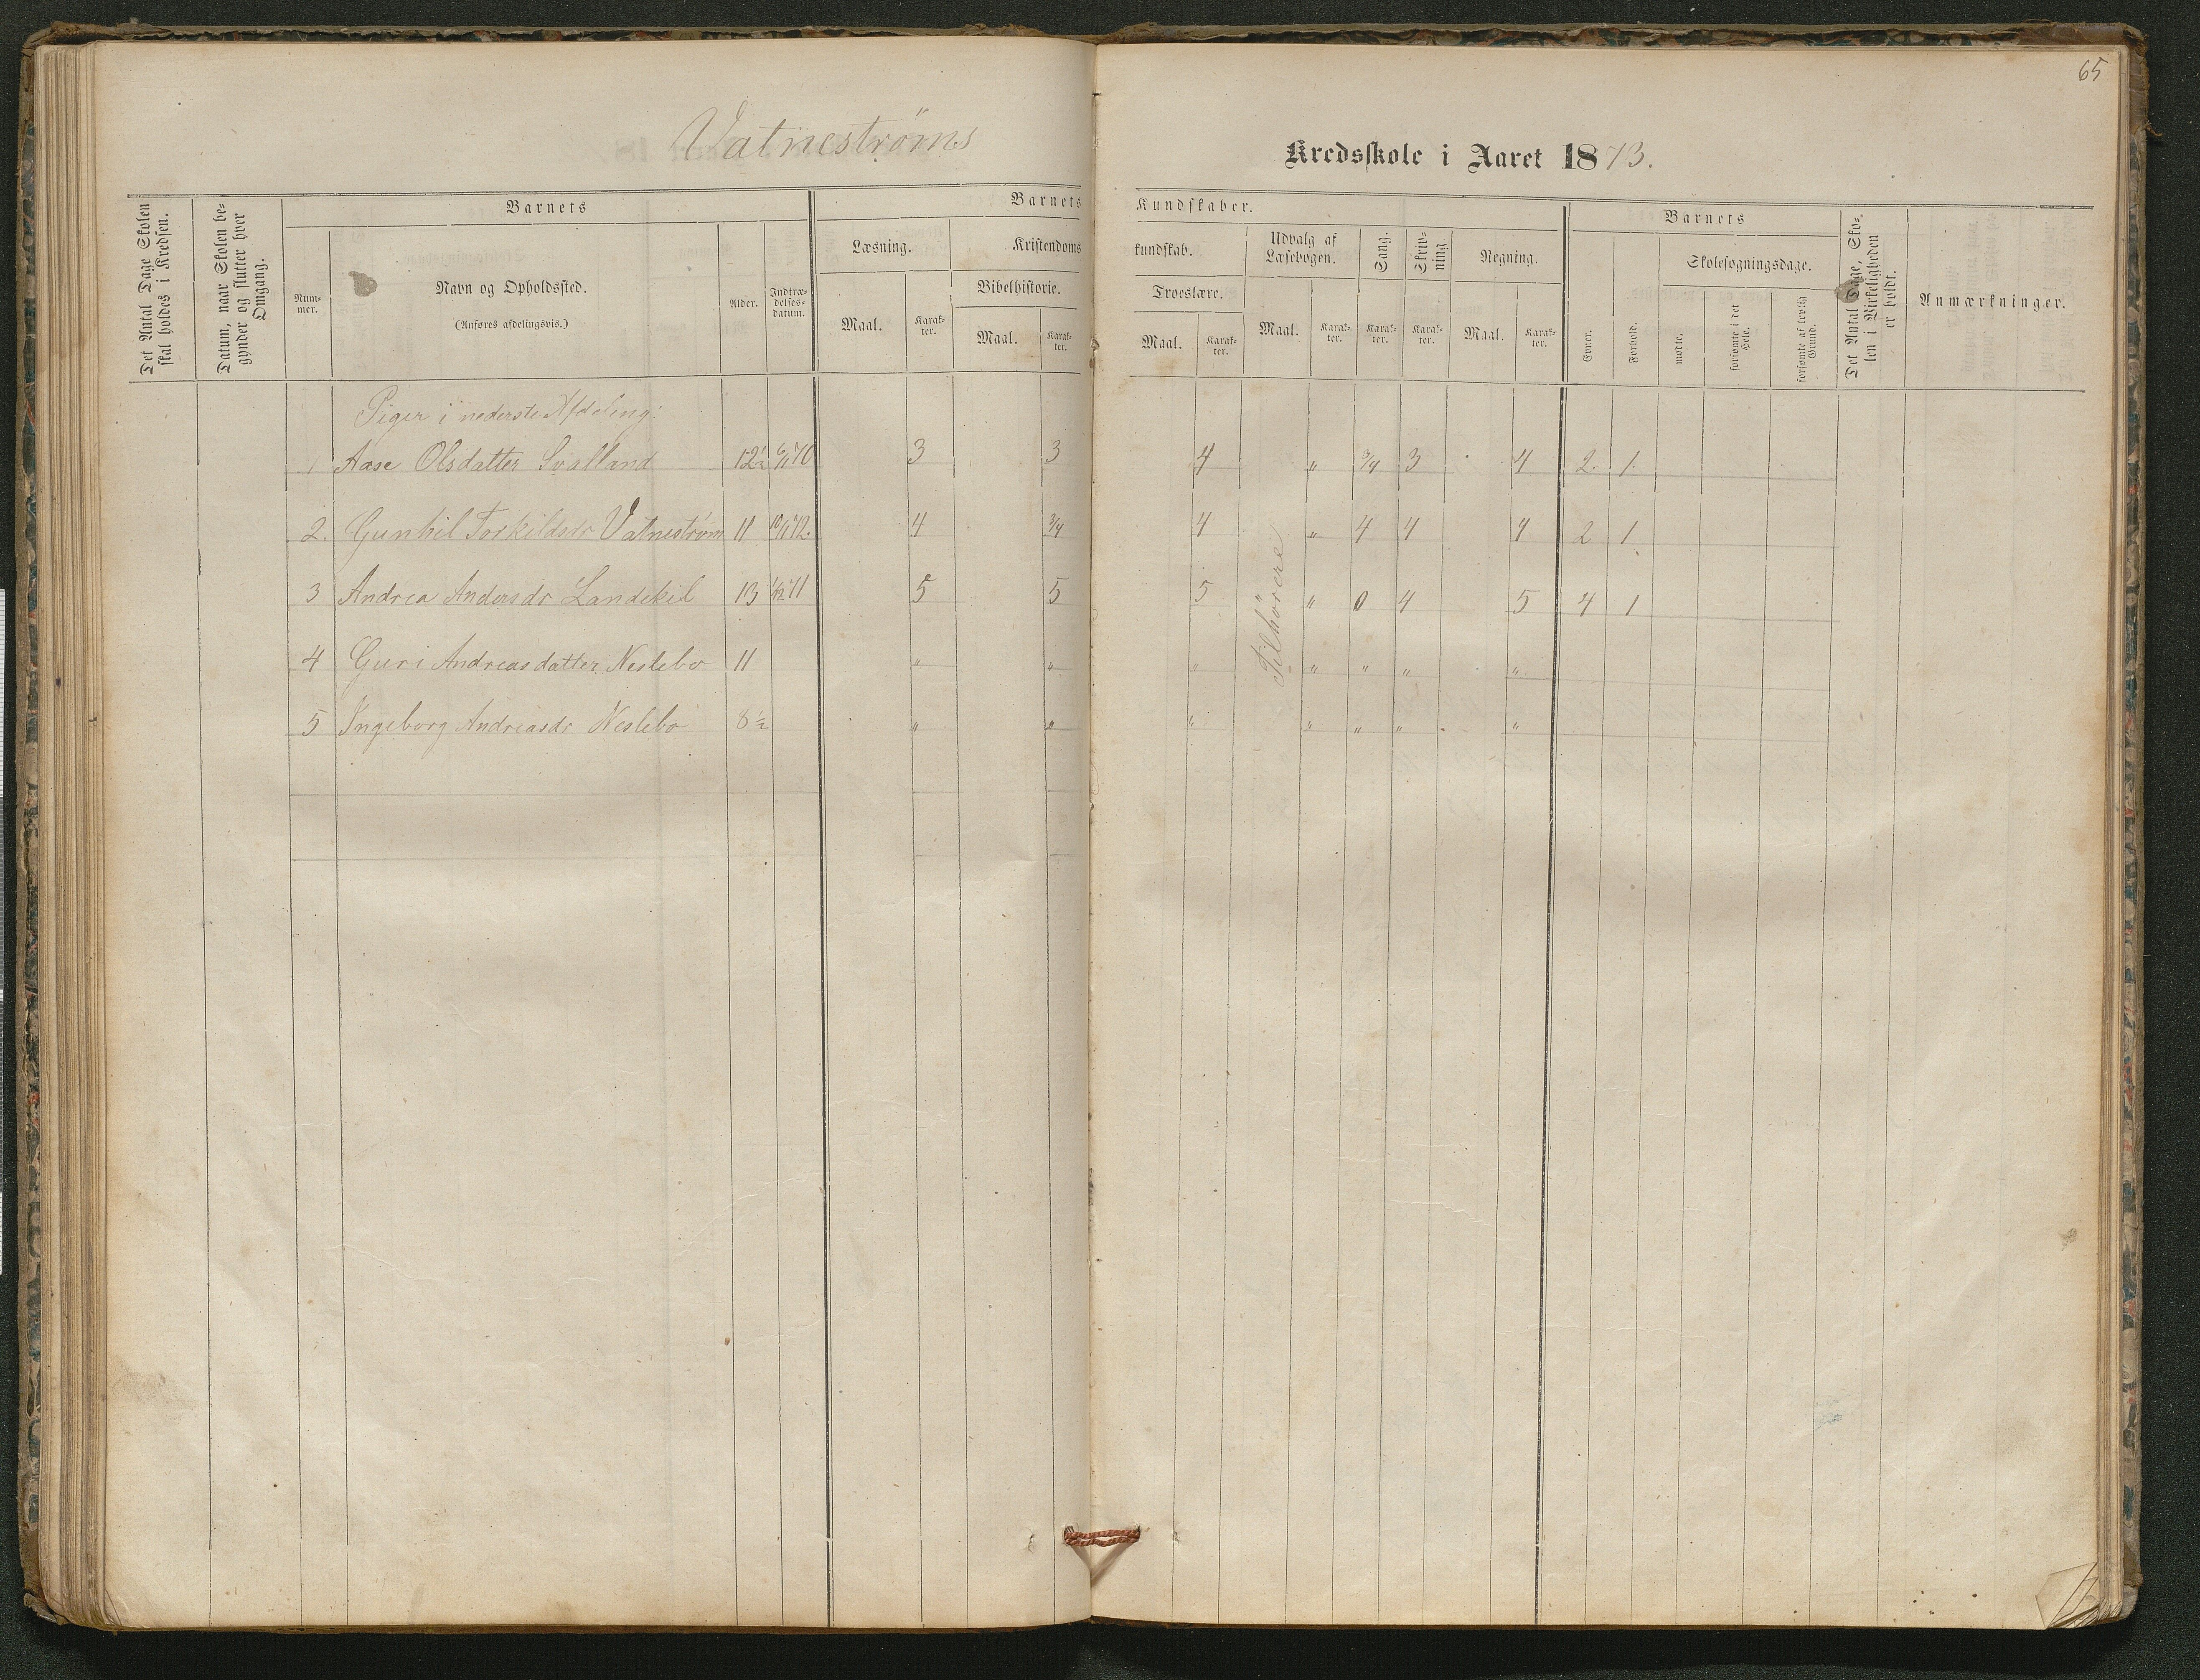 65
Vatneströms
Kredsskole i Aaret 1873.
Det Antal Dage Skolen skal holdes i Kredsen.
Datum, naar Skolen begynder og slutter hver Omgang.
Barnets
Num-mer.
Navn og Opholdssted.
(Anføres afdelingsvis.)
Alder.
Indtræ-delses-datum.
Barnets Kundskaber.
Læsning.
Maal. Karak-ter.
Kristendomskundskab.
Bibelhistorie.
Maal. Karak-ter.
Troeslære.
Maal. Karak-ter.
Udvalg af Læsebogen.
Maal. Karak-ter.
Sang.
Karak-ter.
Skriv-ning.
Karak-ter.
Regning.
Maal. Karak-ter.
Barnets
Evner.
Forhold.
Skolesøgningsdage.
mødte.
forsømte i det Hele.
forsømte af lovlig Grund.
Det Antal Dage, Sko-len i Virkeligheden er holdt.
Anmærkninger.
Piger i nederste Afdeling:
1 Aase Olsdatter Svalland 12½ 6/11 70 3 3 4 " 3/4 3 4 2. 1.
2. Gunhil Torkildsdr Vatneström 11 10/11 72. 4 3/4 4 " 4 4 4 2 1
3 Andrea Andersdr Landekil 13 1/12 71 5 5 5 " 0 4 5 4 1
4 Guri Andreasdatter Neslebo 11 " " " " " " "
5 Ingeborg Andreasdr Neslebo 8½ " " " " " " "
Tilhörere